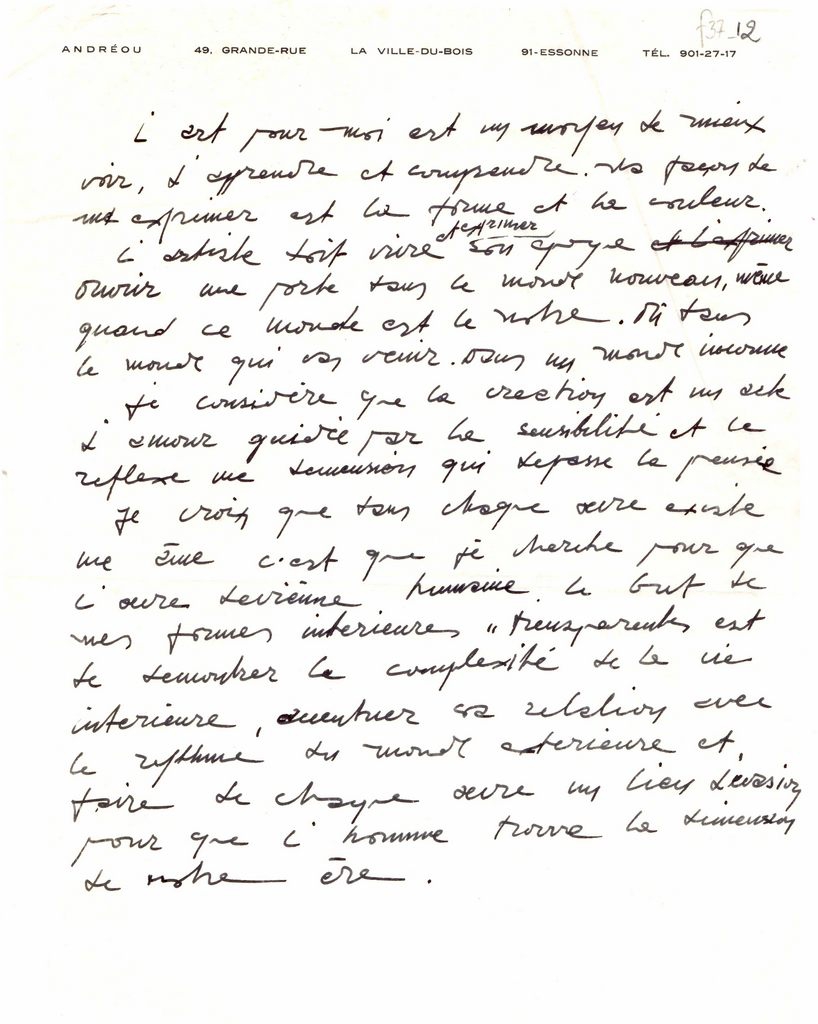 f37_12
ANDRÉOU 49, GRANDE-RUE LA VILLE-DU-BOIS 91-ESSONNE TÉL. 901-27-17
L'art pour moi est un moyen de mieux
voir, d'apprendre et comprendre. Ma façon de
m'exprimer est la forme et la couleur.
et exprimer
L'artiste doit vivre son époque et l'exprimer
ouvrir une porte dans le monde nouveau, même
quand ce monde est le notre. Où dans
le monde qui vas venir. Dans un monde inconnue
Je considère que la creation est un acte
d'amour guidée par la sensibilité et le
reflexe une dimension qui depasse la pensée
Je crois que dans chaque œvre existe
une âme c'est que je cherche pour que
l'œvre devienne humaine. le but de
mes formes interieures "transparentes est
de demontrer la complexité de la vie
interieure, accentuer sa relation avec
le rythme du monde exterieure et,
faire de chaque œvre un lieu d'evasion
pour que l'homme trouve la dimension
de notre ère.